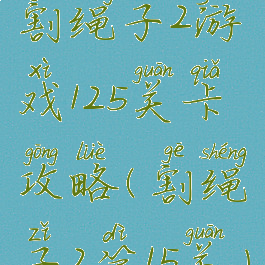 割绳子2游
xì guān qiǎ
戏125关卡
gōng lüè gē shéng
攻略(割绳
zǐ dì guān
子2冷15关)